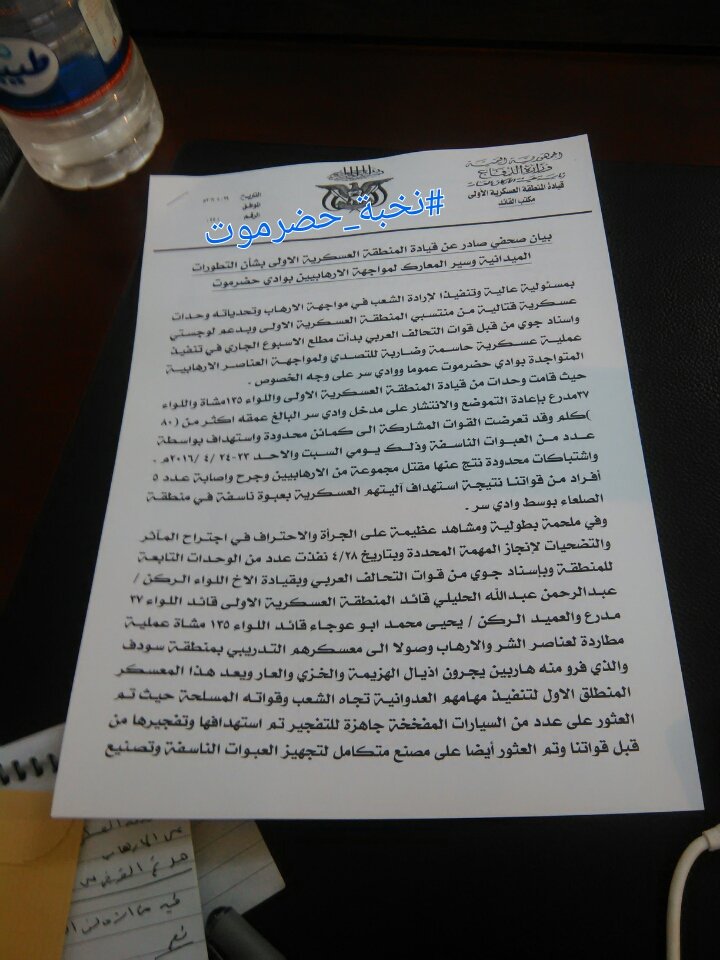 طيبة
الجمهورية اليمنية
وزارة الدفاع
قيادة المنطقة العسكرية الأولى
مكتب القائد
التاريخ
الموافق
الرقم
#نخبة_حضرموت
بيان صحفي صادر عن قيادة المنطقة العسكرية الاولى بشأن التطورات
الميدانية وسير المعارك لمواجهة الارهابيين بوادي حضرموت
بمسئولية عالية وتنفيذا لإرادة الشعب في مواجهة الارهاب وتحدياته وحدات
عسكرية قتالية من منتسبي المنطقة العسكرية الاولى وبدعم لوجستي
واسناد جوي من قبل قوات التحالف العربي بدأت مطلع الاسبوع الجاري في تنفيذ
عملية عسكرية حاسمة وضاربة للتصدي ولمواجهة العناصر الارهابية
المتواجدة بوادي حضرموت عموما ووادي سر على وجه الخصوص .
حيث قامت وحدات من قيادة المنطقة العسكرية الاولى واللواء ١٣٥مشاة واللواء
٣٧مدرع بإعادة التموضع والانتشار على مدخل وادي سر البالغ عمقه اكثر من (٨٠
)كلم وقد تعرضت القوات المشاركة الى كمائن محدودة واستهداف بواسطة
عدد من العبوات الناسفة وذلك يومي السبت والاحد ٢٣-٢٤ /٤ /٢٠١٦م .
واشتباكات محدودة نتج عنها مقتل مجموعة من الارهابيين وجرح واصابة عدد ٥
أفراد من قواتنا نتيجة استهداف آليتهم العسكرية بعبوة ناسفة في منطقة
الصلعاء بوسط وادي سر .
وفي ملحمة بطولية ومشاهد عظيمة على الجرأة والاحتراف في اجتراح المآثر
والتضحيات لإنجاز المهمة المحددة وبتاريخ ٤/٢٨ نفذت عدد من الوحدات التابعة
للمنطقة وبإسناد جوي من قوات التحالف العربي وبقيادة الاخ اللواء الركن /
عبدالرحمن عبدالله الحليلي قائد المنطقة العسكرية الاولى قائد اللواء ٣٧
مدرع والعميد الركن / يحيى محمد ابو عوجاء قائد اللواء ١٣٥ مشاة عملية
مطاردة لعناصر الشر والارهاب وصولا الى معسكرهم التدريبي بمنطقة سودف
والذي فرو منه هاربين يجرون اذيال الهزيمة والخزي والعار ويعد هذا المعسكر
المنطلق الاول لتنفيذ مهامهم العدوانية تجاه الشعب وقواته المسلحة حيث تم
العثور على عدد من السيارات المفخخة جاهزة للتفجير تم استهدافها وتفجيرها من
قبل قواتنا وتم العثور أيضا على مصنع متكامل لتجهيز العبوات الناسفة وتصنيع
نعم